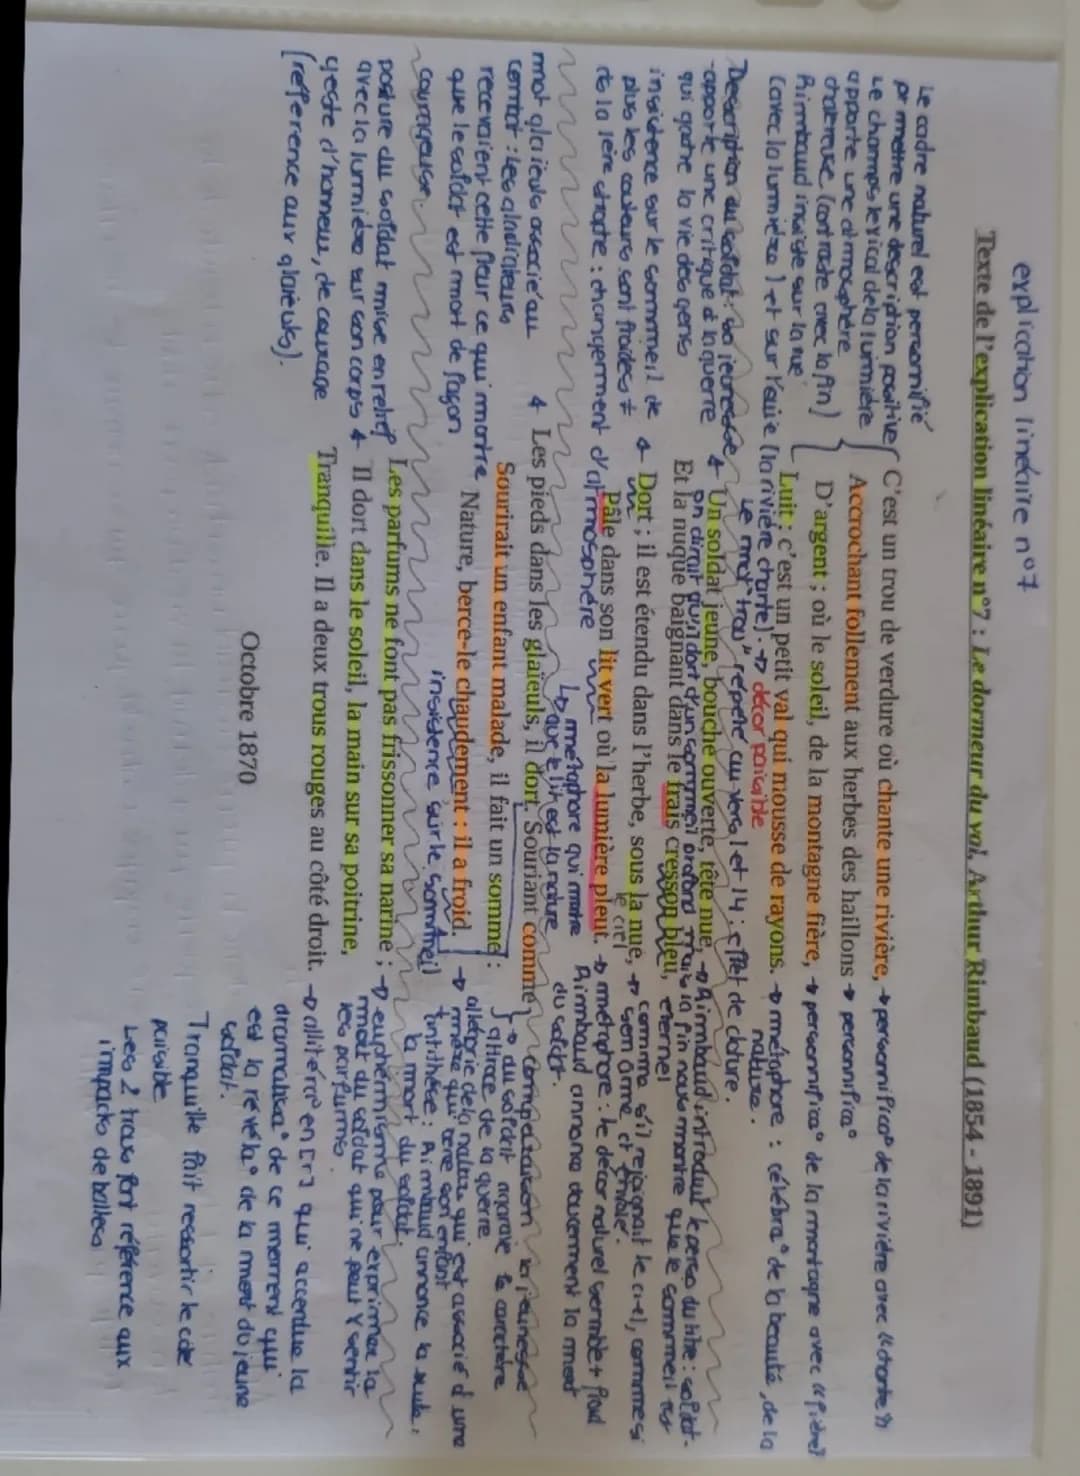 explication linéaire n°7
Texte de l'explication linéaire n°7 : Le dormeur du val, Arthur Rimbaud (1854 - 1891)
Le cadre naturel est personnifié
pr mettre une description positive
Le champs lexical de la lumière
apporte une atmosphère
chaleureuse (contraste avec la fin)
Rimbaud insiste sur la vue
(avec la lumière) et sur l'ouïe (la rivière chante). → décor paisible
C'est un trou de verdure où chante une rivière, → personnifica° de la rivière avec "chante"
Accrochant follement aux herbes des haillons → personnifica°
D'argent ; où le soleil, de la montagne fière, → personnifica° de la montagne avec "fière"
Luit : c'est un petit val qui mousse de rayons. → métaphore : célébra° de la beauté, de la
nature.
Le mot "trou" répété au vers 1 et 14 : effet de cloture.
Description du soldat : sa jeunesse
apporte une critique à la guerre
qui gache la vie des gens
Un soldat jeune, bouche ouverte, tête nue, → Rimbaud introduit le perso du titre : soldat.
on dirait qu'il dort d'un sommeil profond mais la fin nous montre que le sommeil est
éternel
Et la nuque baignant dans le frais cresson bleu,
insistence sur le sommeil de
plus les couleurs sont froides ≠
de la 1ère strophe : changement d'atmosphère
Dort ; il est étendu dans l'herbe, sous la nue, → comme s'il rejoignait le ciel, comme si
le ciel
son âme
Pâle dans son lit vert où la lumière pleut. → métaphore : le décor naturel semble + froid
Rimbaud annonce doucement la mort
du soldat.
↳ métaphore qui montre
que le lit est la nature
mot glaïeuls associé au
combat : les gladiateurs
recevaient cette fleur ce qui montre
que le soldat est mort de façon
courageuse.
Les pieds dans les glaïeuls, il dort. Souriant comme
Sourirait un enfant malade, il fait un somme :
comparaison la jeunesse
→ du soldat aggrave le caractère
atroce de la guerre
Nature, berce-le chaudement : il a froid. → allégorie de la nature qui est associé à une
mère qui berce son enfant
+ antithèse : Rimbaud annonce la suite :
la mort du soldat
insistence sur le sommeil
posture du soldat mise en relief
avec la lumière sur son corps
geste d'honneur, de courage
(référence aux glaïeuls).
Les parfums ne font pas frissonner sa narine ; → euphémisme pour exprimer la
mort du soldat qui ne peut + sentir
les parfums.
Il dort dans le soleil, la main sur sa poitrine,
Tranquille. Il a deux trous rouges au côté droit. → allitéra° en [r] qui accentue la
dramatisa° de ce moment qui
est la révéla° de la mort du jeune
soldat.
Octobre 1870
Tranquille fait ressortir le côté
paisible
Les 2 trous font référence aux
impacts de balles